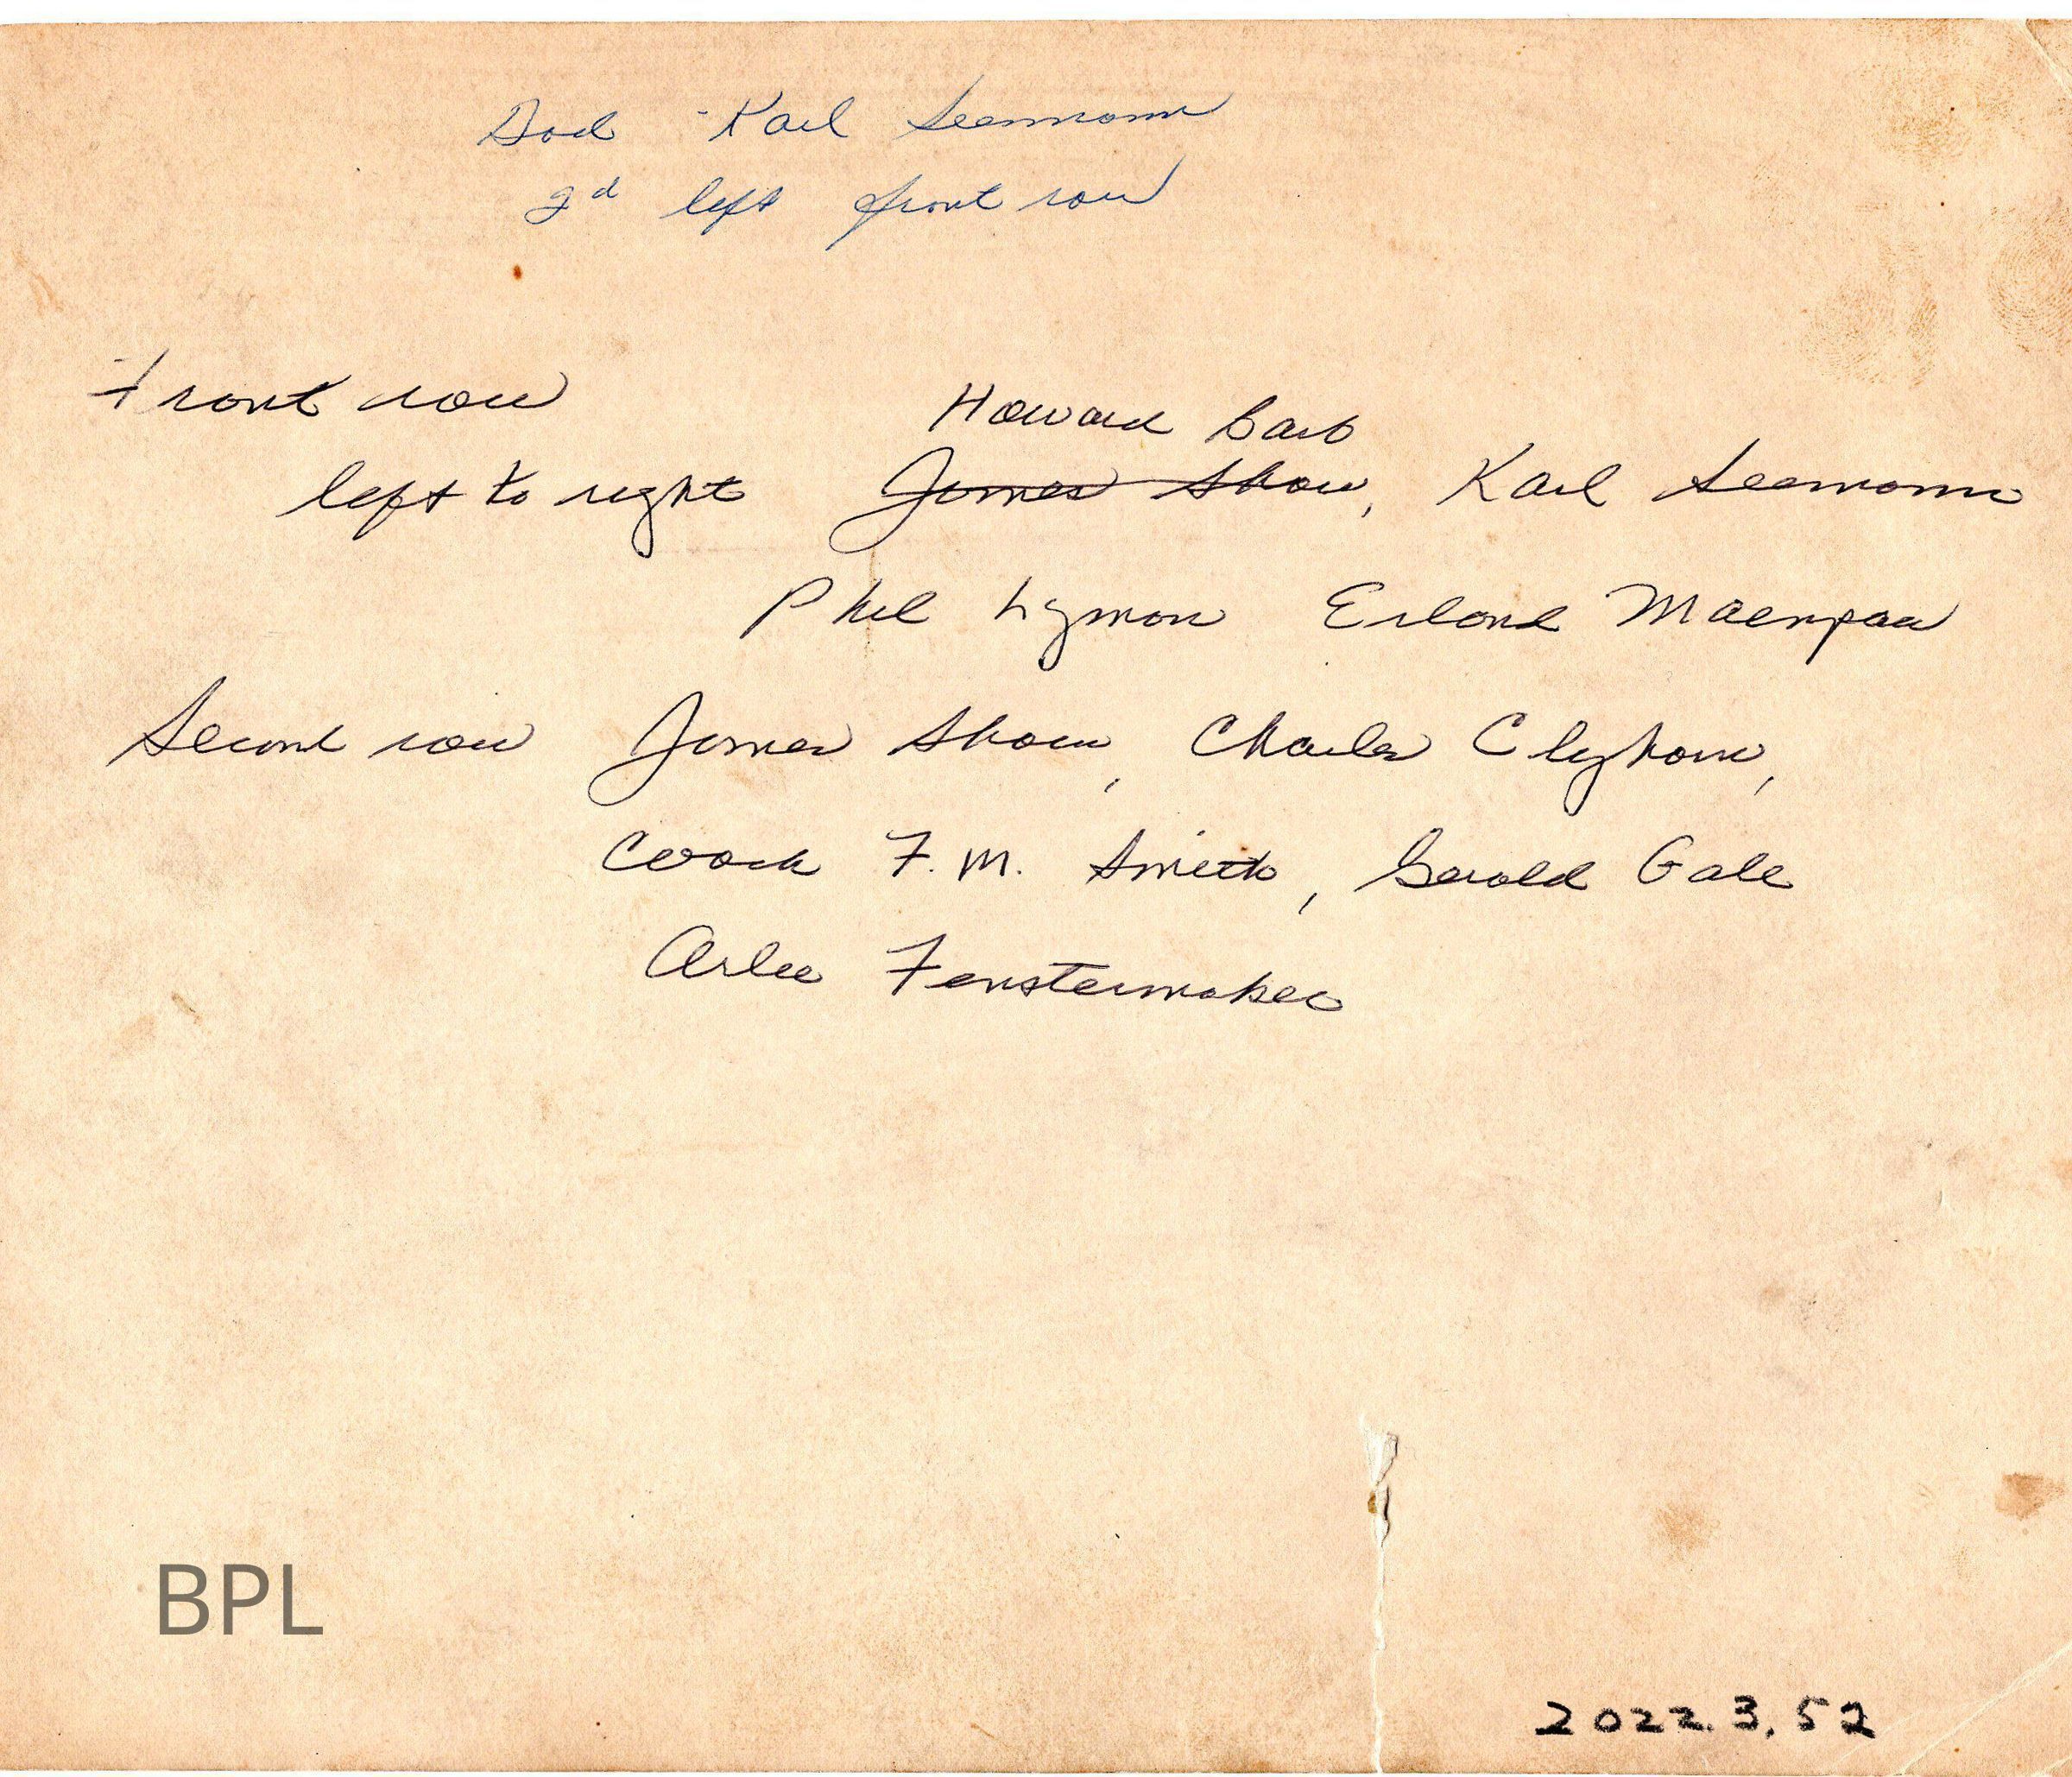 Dad - Karl Seemann
2d left front row
Front row
Howard Barb
left to right James Shaw, Karl Seemann
Phil Lyman Erland Maenpaa
Second row James Shaw, Charles Clyborne,
Coach F. M. Smith, Gerald Gale
Arlee Fenstermaker
BPL
2022.3.52